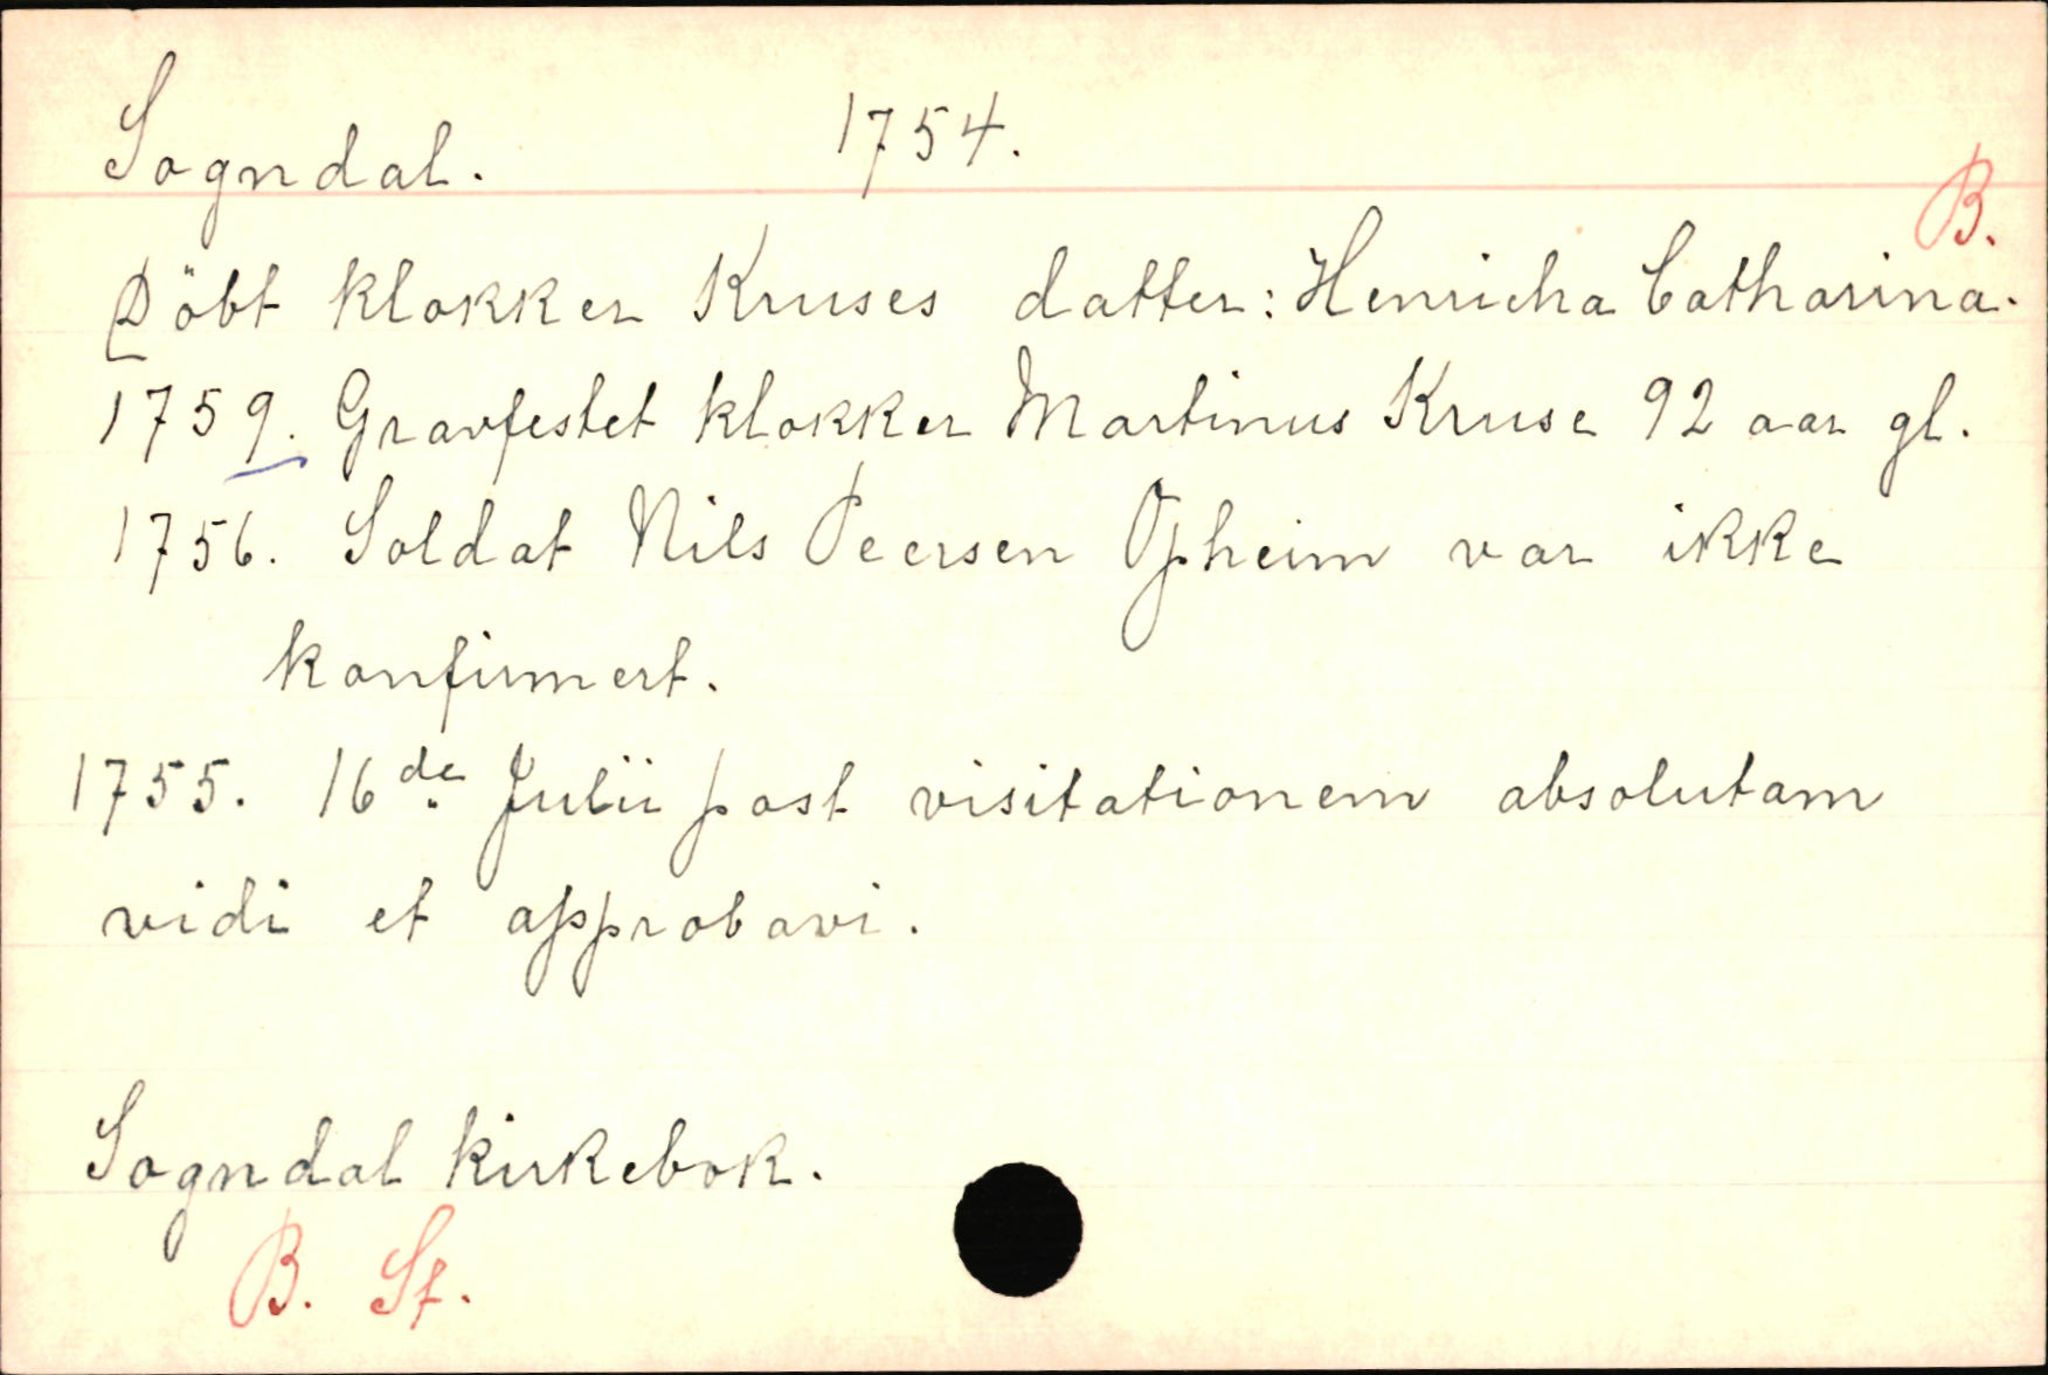 Sogndal. 1754.
B.
Döbt klokker Kruses datter: Henricha Catharina.
1759. Gravfestet klokker Martinus Kruse 92 aar gl.
1756. Soldat Nils Peersen Opheim var ikke
konfirmert.
1755. 16de Julii post visitationem absolutam
vidi et approbavi.
Sogndal kirkebok.
B. St.